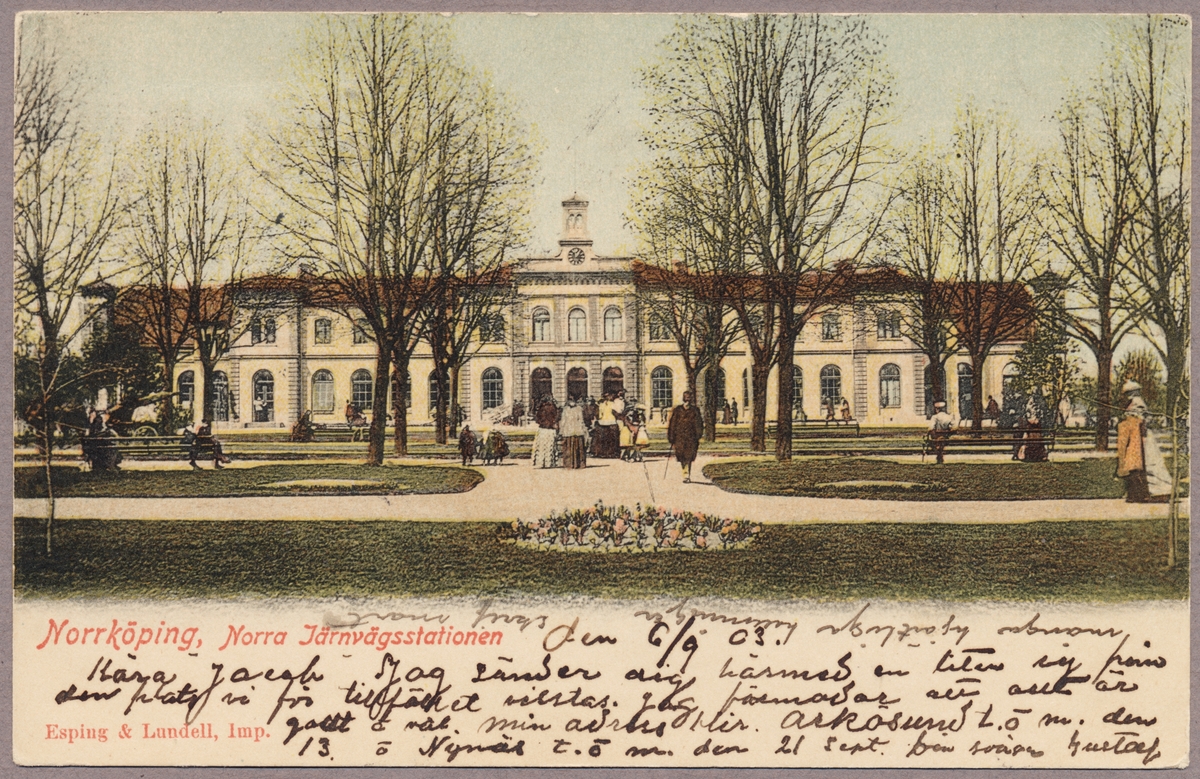 Norrköping, Norra Järnvägsstationen
Den 6/9 03.
Kära Jacob Jag sänder dig härmed en liten vy från
den plats vi för tillfället vistas. Jag förmodar att allt är
godt o väl. min adress blir. Arkösund t. o m. den
13. o Nynäs t. o m. den 21 Sept. Din Gustaf
Esping & Lundell, Imp.
många hjärtliga hälsningar
skrif snart